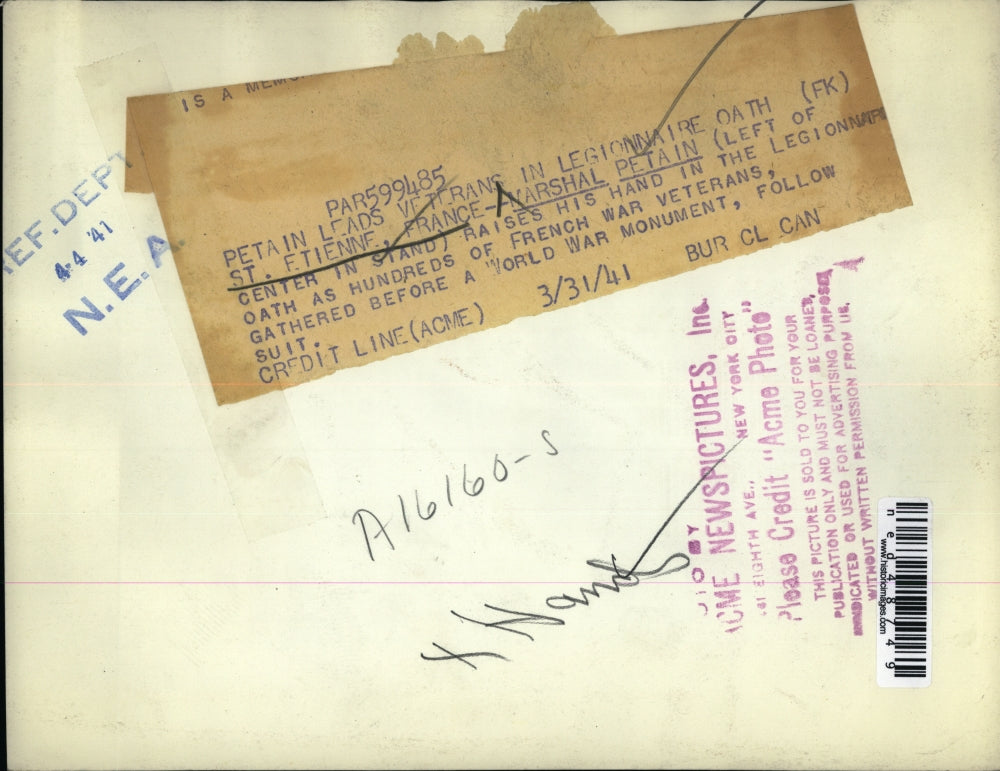 IS A MEMO
PAR599485
PETAIN LEADS VETERANS IN LEGIONNAIRE OATH (FK)
ST. ETIENNE, FRANCE--MARSHAL PETAIN (LEFT OF
CENTER IN STAND) RAISES HIS HAND IN THE LEGIONNAIRE
OATH AS HUNDREDS OF FRENCH WAR VETERANS,
GATHERED BEFORE A WORLD WAR MONUMENT, FOLLOW
SUIT.
CREDIT LINE (ACME) 3/31/41 BUR CL CAN
REF. DEPT
4-4 '41
N.E.A.
A16160-S
BY
ACME NEWSPICTURES, Inc.
EIGHTH AVE., NEW YORK CITY
Please Credit "Acme Photo"
THIS PICTURE IS SOLD TO YOU FOR YOUR
PUBLICATION ONLY AND MUST NOT BE LOANED,
SYNDICATED OR USED FOR ADVERTISING PURPOSES
WITHOUT WRITTEN PERMISSION FROM US.
www.historicimages.com
ned48749